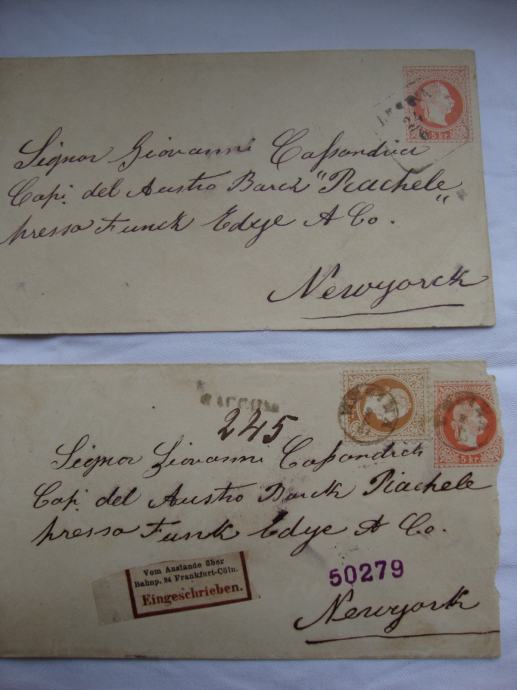 5 Kr.
Signor Giovanni Cossandria
Capi. del Austro Barck "Piachele"
presso Funck Edye & Co.
Newyorck
245
5 Kr.
Signor Giovanni Cossandria
Capi. del Austro Barck Piachele
presso Funck Edye & Co.
50279
Vom Auslande über
Bahnp. 24 Frankfurt-Cöln.
Eingeschrieben.
Newyork